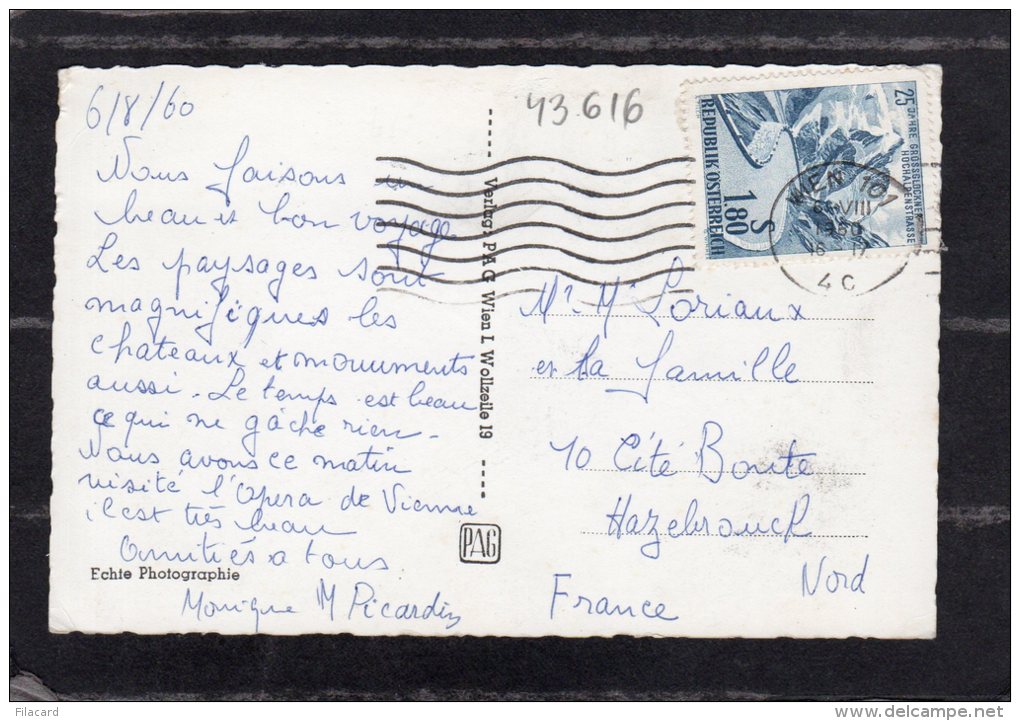 6/8/60
Nous faisons un
beau et bon voyage
Les paysages sont
magnifiques les
chateaux et monuments
aussi. Le temps est beau
ce qui ne gâche rien.
Nous avons ce matin
visité l'Opera de Vienne
il est très beau
Amitiés a tous
Monique M Picardin
Echte Photographie
Verlag: PAG Wien I. Wollzeile 19
PAG
43.616
25 JAHRE GROSSGLOCKNER
HOCHALPENSTRASSE
S 1.80
REPUBLIK ÖSTERREICH
WIEN 101
VIII
1960
16
4 C
Mr Mr Loriaux
et la famille
10 Cité Bonte
Hazebrouck
Nord
France
Filacard